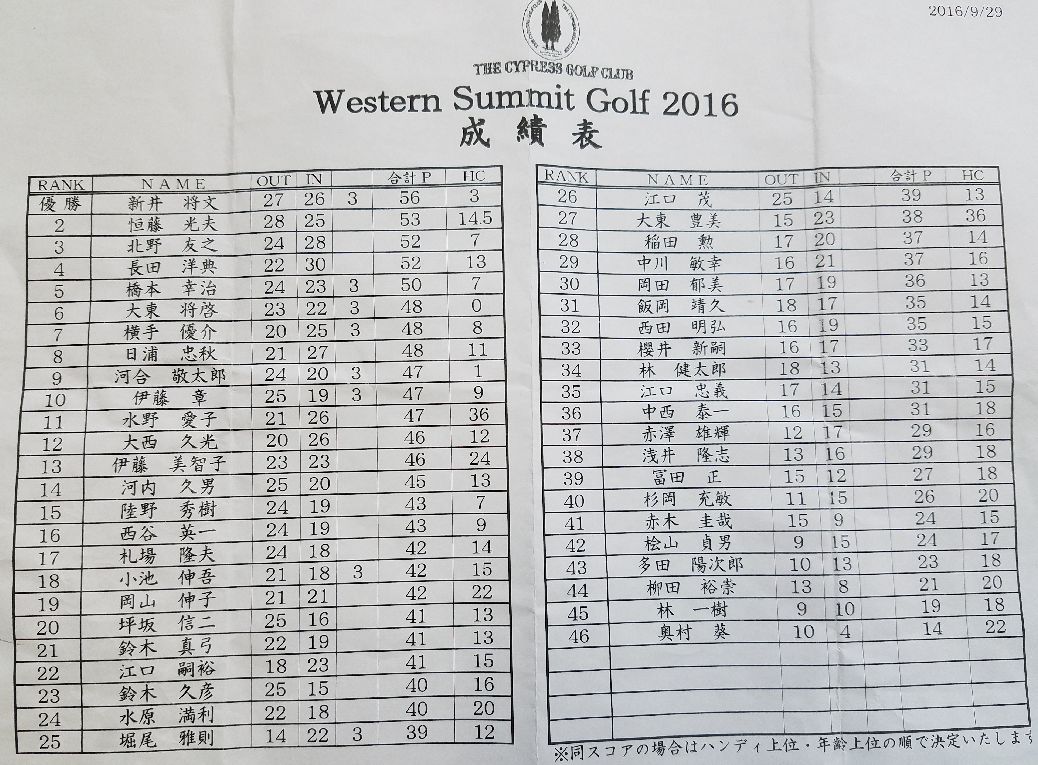 2016/9/29
THE CYPRESS GOLF CLUB
Western Summit Golf 2016
成績表
RANK NAME OUT IN 合計P HC
優勝 新井 将文 27 26 3 56 3
2 恒藤 光夫 28 25 53 14.5
3 北野 友之 24 28 52 7
4 長田 洋典 22 30 52 13
5 橋本 幸治 24 23 3 50 7
6 大東 将啓 23 22 3 48 0
7 横手 優介 20 25 3 48 8
8 日浦 忠秋 21 27 48 11
9 河合 敬太郎 24 20 3 47 1
10 伊藤 章 25 19 3 47 9
11 水野 愛子 21 26 47 36
12 大西 久光 20 26 46 12
13 伊藤 美智子 23 23 46 24
14 河内 久男 25 20 45 13
15 陸野 秀樹 24 19 43 7
16 西谷 英一 24 19 43 9
17 札場 隆夫 24 18 42 14
18 小池 伸吾 21 18 3 42 15
19 岡山 伸子 21 21 42 22
20 坪坂 信二 25 16 41 13
21 鈴木 真弓 22 19 41 13
22 江口 嗣裕 18 23 41 15
23 鈴木 久彦 25 15 40 16
24 水原 満利 22 18 40 20
25 堀尾 雅則 14 22 3 39 12
RANK NAME OUT IN 合計P HC
26 江口 茂 25 14 39 13
27 大東 豊美 15 23 38 36
28 稲田 勲 17 20 37 14
29 中川 敏幸 16 21 37 16
30 岡田 郁美 17 19 36 13
31 飯岡 靖久 18 17 35 14
32 西田 明弘 16 19 35 15
33 櫻井 新嗣 16 17 33 17
34 林 健太郎 18 13 31 14
35 江口 忠義 17 14 31 15
36 中西 泰一 16 15 31 18
37 赤澤 雄輝 12 17 29 16
38 浅井 隆志 13 16 29 18
39 冨田 正 15 12 27 18
40 杉岡 充敏 11 15 26 20
41 赤木 圭哉 15 9 24 15
42 桧山 貞男 9 15 24 17
43 多田 陽次郎 10 13 23 18
44 柳田 裕崇 13 8 21 20
45 林 一樹 9 10 19 18
46 奥村 葵 10 4 14 22
※同スコアの場合はハンディ上位・年齢上位の順で決定いたします